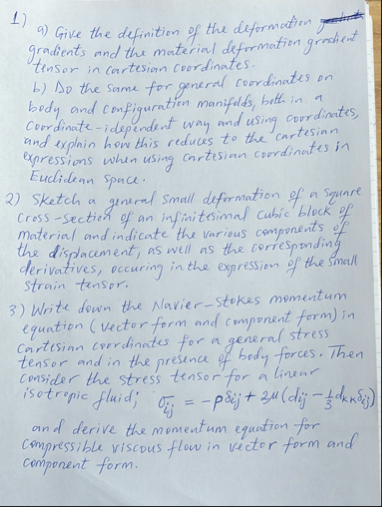 1) a) Give the definition of the deformation
gradients and the material deformation gradient
tensor in cartesian coordinates.
b) Do the same for general coordinates on
body and configuration manifolds, both in a
coordinate-idependent way and using coordinates,
and explain how this reduces to the cartesian
expressions when using cartesian coordinates in
Euclidean space.
2) Sketch a general small deformation of a square
cross-section of an infinitesimal cubic block of
material and indicate the various components of
the displacement, as well as the corresponding
derivatives, occuring in the expression of the small
strain tensor.
3) Write down the Navier-Stokes momentum
equation (vector form and component form) in
cartesian coordinates for a general stress
tensor and in the presence of body forces. Then
consider the stress tensor for a linear
isotropic fluid; σij = -pδij + 2μ(dij - 1/3 dkk δij)
and derive the momentum equation for
compressible viscous flow in vector form and
component form.